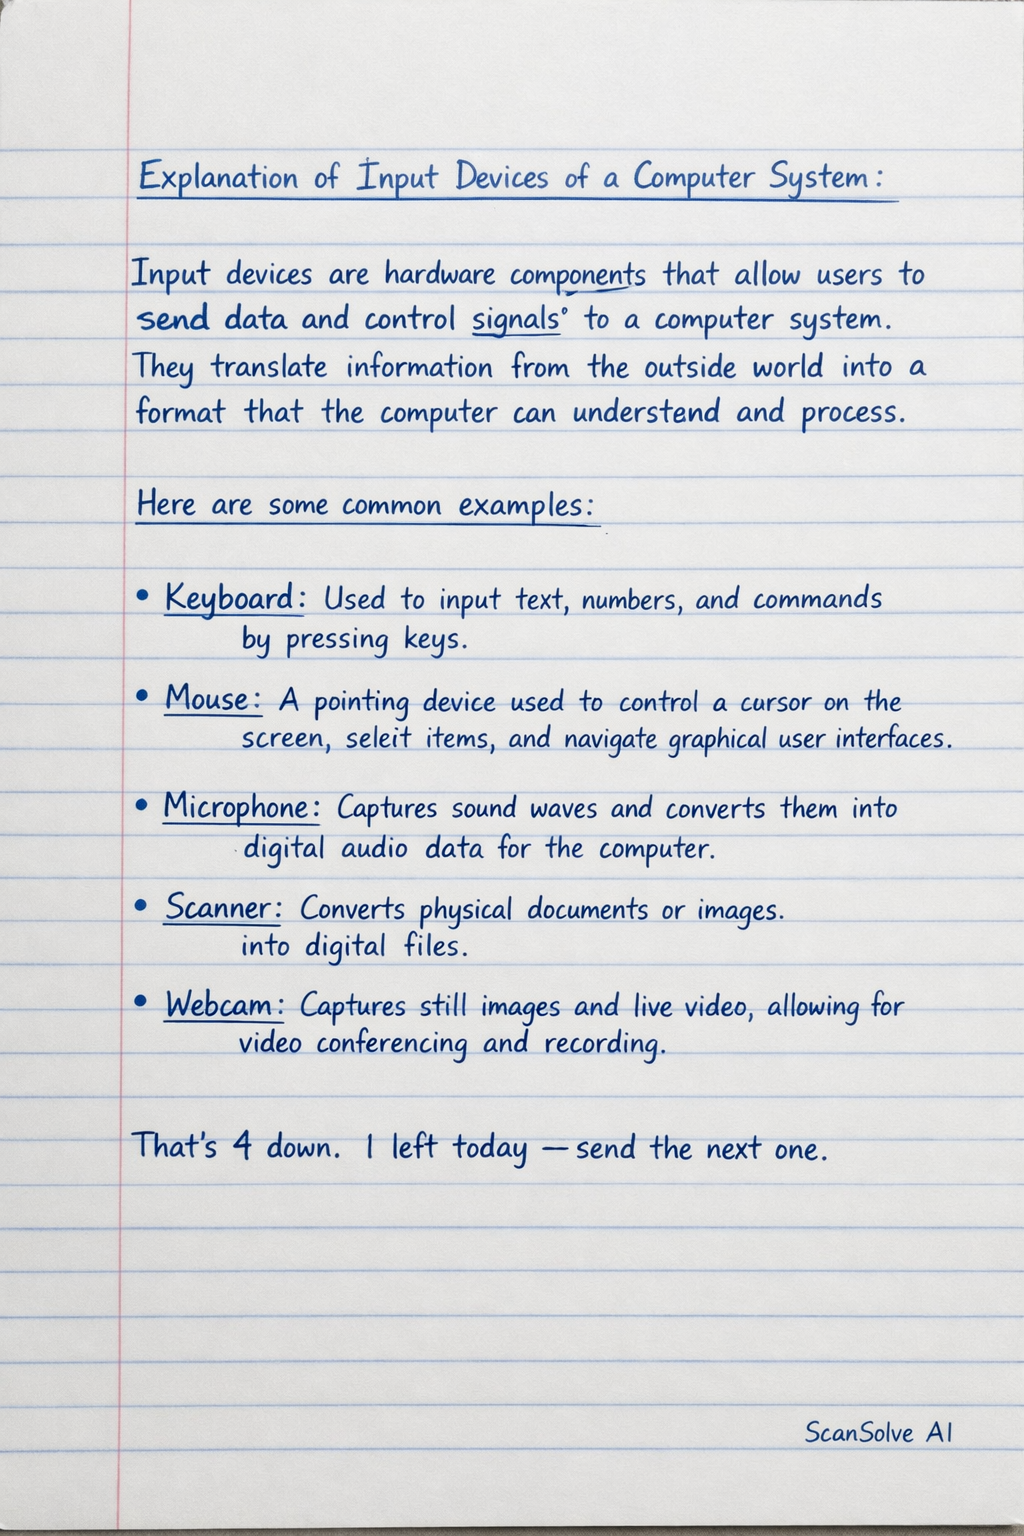 Explanation of Input Devices of a Computer System:
Input devices are hardware components that allow users to
send data and control signals° to a computer system.
They translate information from the outside world into a
format that the computer can understand and process.
Here are some common examples:
• Keyboard: Used to input text, numbers, and commands
by pressing keys.
• Mouse: A pointing device used to control a cursor on the
screen, seleit items, and navigate graphical user interfaces.
• Microphone: Captures sound waves and converts them into
digital audio data for the computer.
• Scanner: Converts physical documents or images.
into digital files.
• Webcam: Captures still images and live video, allowing for
video conferencing and recording.
That's 4 down. 1 left today — send the next one.
ScanSolve AI